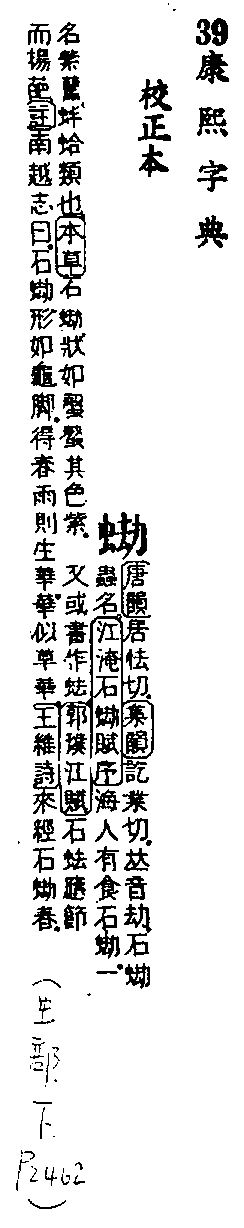 39康熙字典
校正本
蜐
唐韻居怯切集韻訖業切𠀤音劫石蜐
蟲名江淹石蜐賦序海人有食石蜐一
名紫蚌蛤類也本草石蜐狀如蟹螯其色紫 又或書作𧉧郭璞江賦石𧉧應節
而揚葩註南越志曰石蜐形如龜脚得春雨則生華華似草華王維詩來經石蜐春
(虫部下P2462)